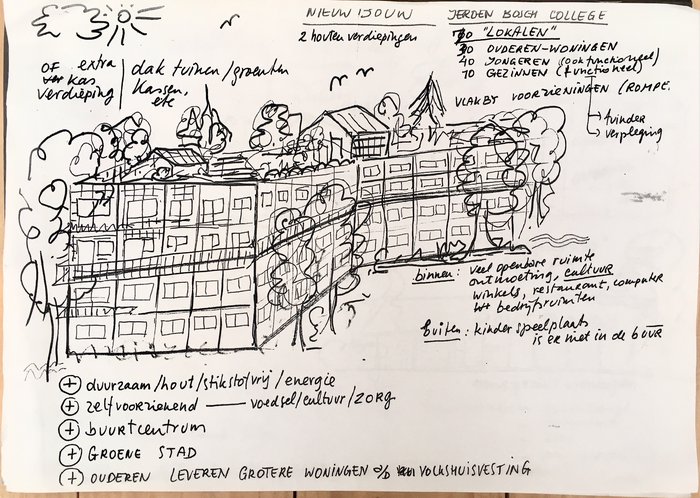 NIEUWBOUW
2 houten verdiepingen
JEROEN BOSCH COLLEGE
"LOKALEN"
30 OUDEREN-WONINGEN
40 JONGEREN (ook functioneel)
10 GEZINNEN (functioneel)
tuinder
verpleging
VLAKBY VOORZIENINGEN (ROMPE.
OF extra
kas
verdieping
dak tuinen/groenten
kassen,
etc
binnen: veel openbare ruimte
ontmoeting, cultuur
winkels, restaurant, computer
bedrijfsruimten
buiten: kinderspeelplaats
is er niet in de buur
+ duurzaam/hout/stikstofvrij/energie
+ zelfvoorzienend — voedsel/cultuur/ZORG
+ buurtcentrum
+ GROENE STAD
+ OUDEREN LEVEREN GROTERE WONINGEN VOLKSHUISVESTING